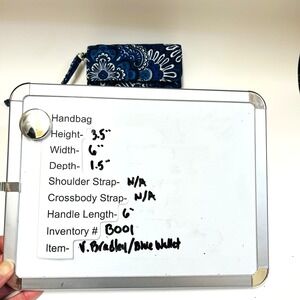 Handbag
Height- 3.5"
Width- 6"
Depth- 1.5"
Shoulder Strap- N/A
Crossbody Strap- N/A
Handle Length- 6"
Inventory # B001
Item- V. Bradley/Blue Wallet